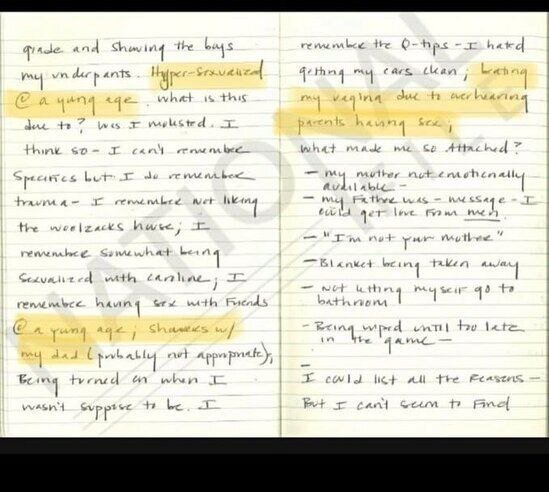 grade and showing the boys
my underpants. Hyper-sexualized
@ a young age. what is this
due to? Was I molested. I
think so - I can't remember
specifics but I do remember
trauma - I remember not liking
the woolzacks house; I
remember somewhat being
sexualized with caroline; I
remember having sex with Friends
@ a young age; showers w/
my dad (probably not appropriate),
Being turned on when I
wasn't suppose to be. I
remember the Q-tips - I hated
getting my ears clean;
my vagina due to overhearing
parents having sex;
what made me so attached?
- my mother not emotionally
available -
- my Father was - message - I
could get love from men.
- "I'm not your mother"
- Blanket being taken away
- not letting myself go to
bathroom
- Being wiped until too late
in the game -
-
I could list all the Reasons -
But I can't seem to Find
NATIONAL